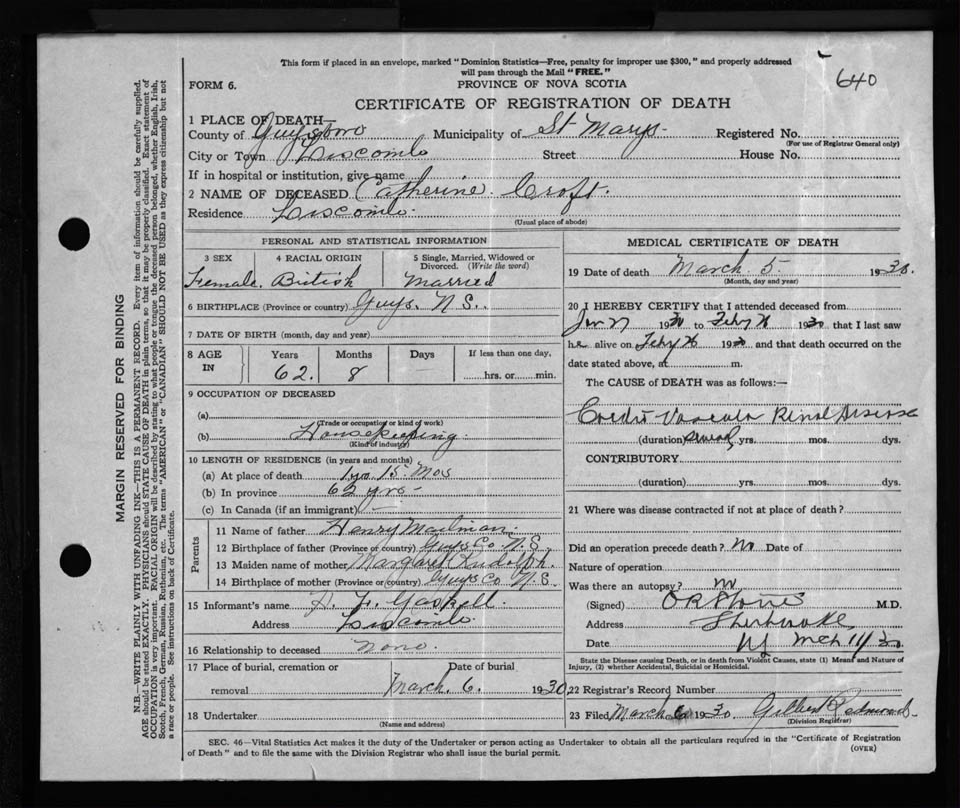 This form if placed in an envelope, marked "Dominion Statistics—Free, penalty for improper use $300," and properly addressed
will pass through the Mail "FREE."
640
FORM 6.
PROVINCE OF NOVA SCOTIA
CERTIFICATE OF REGISTRATION OF DEATH
1 PLACE OF DEATH—
County of Guysboro Municipality of St Marys. Registered No.
(For use of Registrar General only)
City or Town Liscomb Street House No.
If in hospital or institution, give name
2 NAME OF DECEASED Catherine Croft.
Residence Liscomb.
(Usual place of abode)
PERSONAL AND STATISTICAL INFORMATION
3 SEX 4 RACIAL ORIGIN 5 Single, Married, Widowed or
Divorced. (Write the word)
Female. British Married
6 BIRTHPLACE (Province or country) Guys. N.S.
7 DATE OF BIRTH (month, day and year)
8 AGE IN Years Months Days If less than one day,
62. 8 — hrs. or min.
9 OCCUPATION OF DECEASED
(a)
(Trade or occupation or kind of work)
(b) Housekeeping.
(Kind of industry)
10 LENGTH OF RESIDENCE (in years and months)
(a) At place of death 1 yr. 15 Mos
(b) In province 62 yrs-
(c) In Canada (if an immigrant) —
Parents
11 Name of father Henry Mailman.
12 Birthplace of father (Province or country) Guys Co N.S
13 Maiden name of mother Margaret Rudolph.
14 Birthplace of mother (Province or country) Guys Co N.S.
15 Informant's name Gaskell.
Address Liscomb.
16 Relationship to deceased None.
17 Place of burial, cremation or Date of burial
removal March. 6. 1930
18 Undertaker
(Name and address)
MEDICAL CERTIFICATE OF DEATH
19 Date of death March 5. 1930.
(Month, day and year)
20 I HEREBY CERTIFY that I attended deceased from
Jan 27 1930 to Feby 26 1930 that I last saw
her alive on Feby 26 1930 and that death occurred on the
date stated above, at m.
The CAUSE of DEATH was as follows:—
Cardio Vascular Renal Disease
(duration) several yrs. mos. dys.
CONTRIBUTORY
(duration) yrs. mos. dys.
21 Where was disease contracted if not at place of death?
Did an operation precede death? no Date of
Nature of operation
Was there an autopsy? no
(Signed) M.D.
Address Sherbrooke
Date Mch 11/30
State the Disease causing Death, or in death from Violent Causes, state (1) Means and Nature of
Injury, (2) whether Accidental, Suicidal or Homicidal.
22 Registrar's Record Number
23 Filed March 6 1930 Gilbert Redmond
(Division Registrar)
SEC. 46—Vital Statistics Act makes it the duty of the Undertaker or person acting as Undertaker to obtain all the particulars required in the "Certificate of Registration
of Death" and to file the same with the Division Registrar who shall issue the burial permit.
(OVER)
MARGIN RESERVED FOR BINDING
N.B.—WRITE PLAINLY WITH UNFADING INK—THIS IS A PERMANENT RECORD. Every item of information should be carefully supplied.
AGE should be stated EXACTLY. PHYSICIANS should STATE CAUSE OF DEATH in plain terms, so that it may be properly classified. Exact statement of
OCCUPATION is very important. RACIAL ORIGIN will be described by stating to what people or tongue the deceased person belonged, whether English, Irish,
Scotch, French, German, Russian, Ruthenian, etc. The terms "AMERICAN" or "CANADIAN" SHOULD NOT BE USED as they express citizenship but not
a race or people. See instructions on back of Certificate.